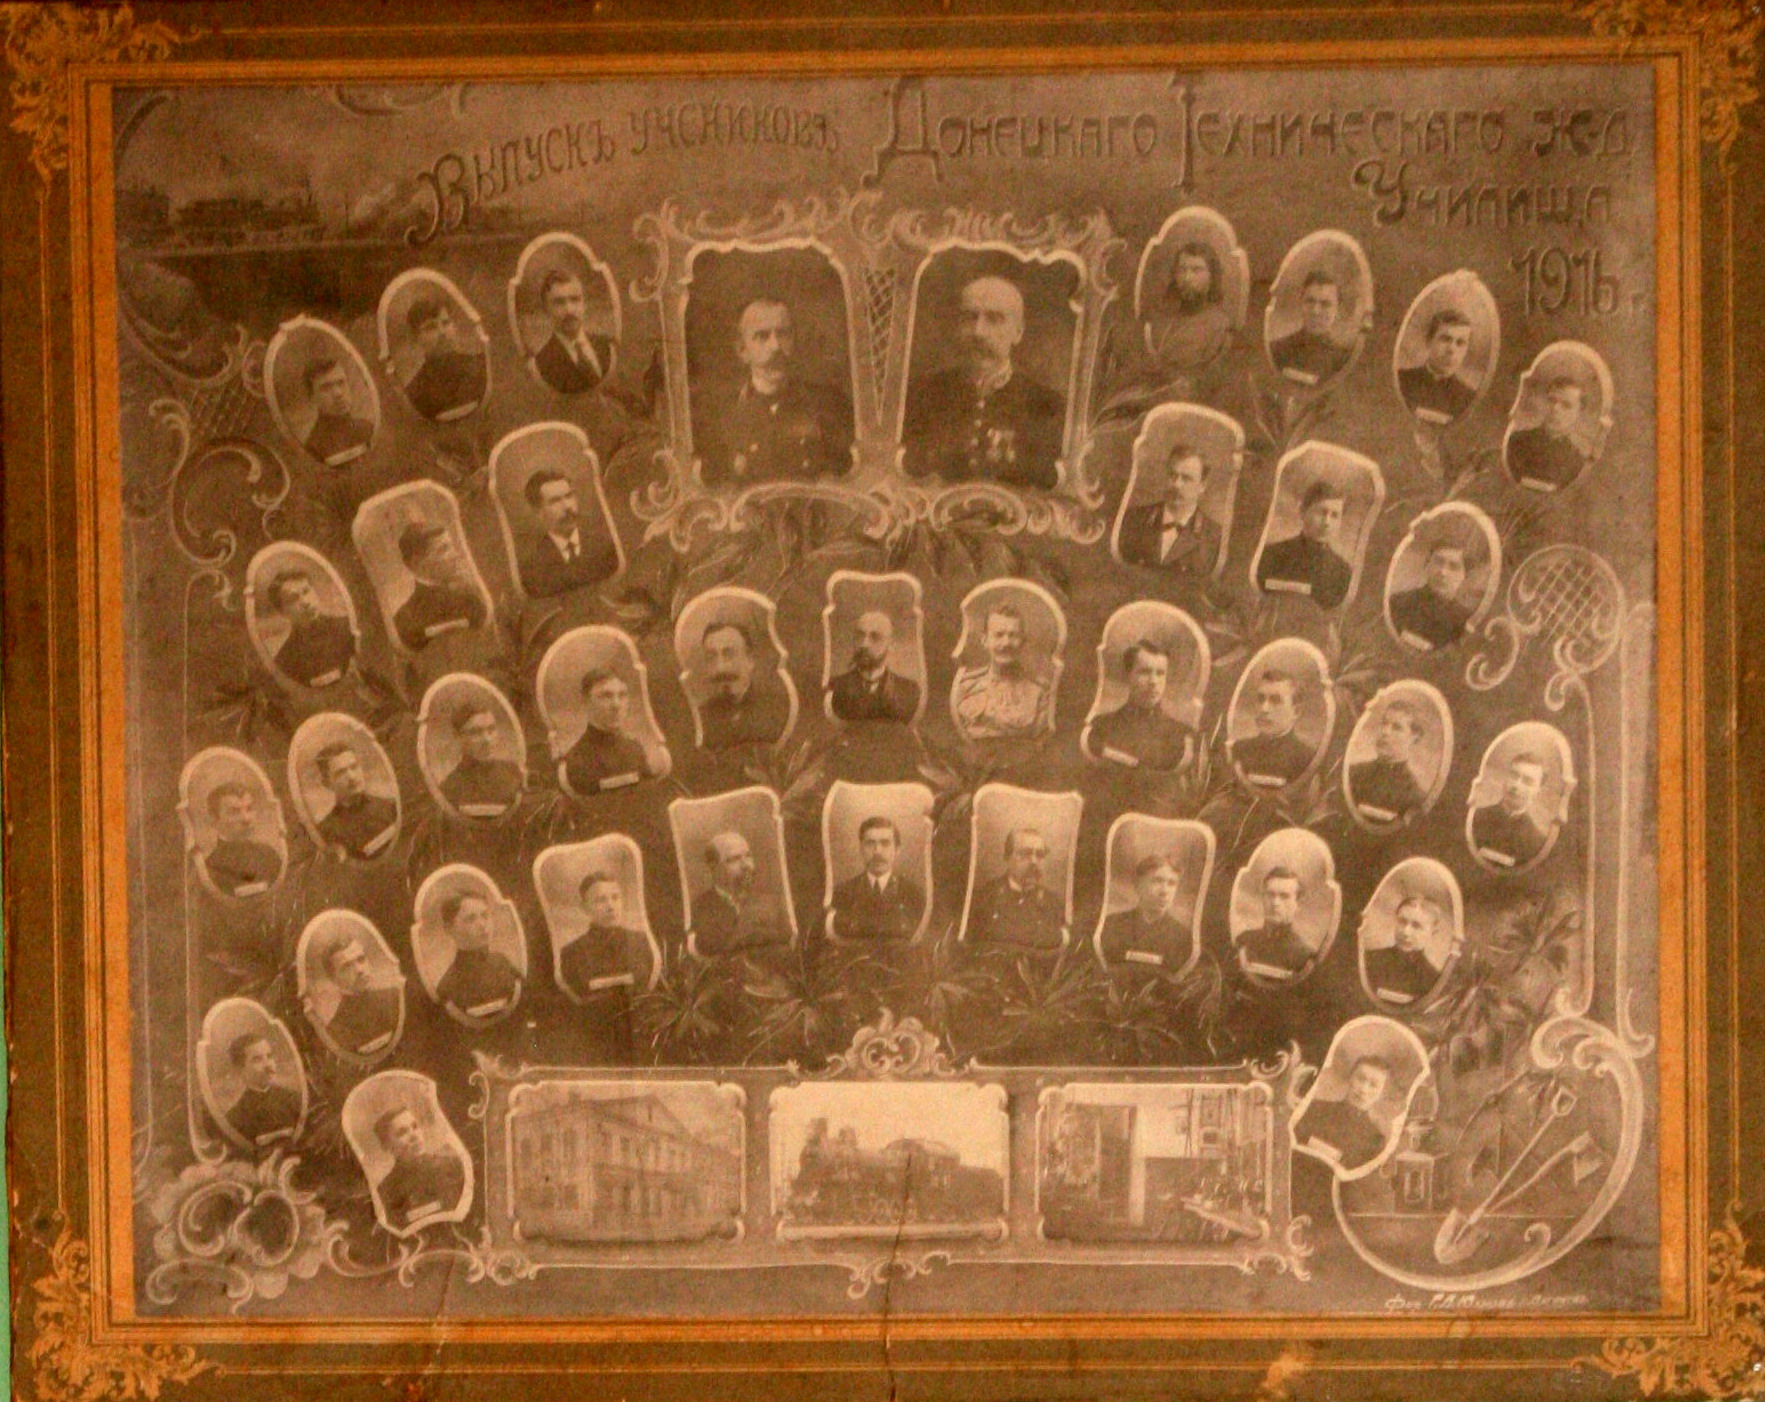 Выпускъ учениковъ Донецкаго Техническаго ж-д
Училища
1916 г.
Фот. Г. А.